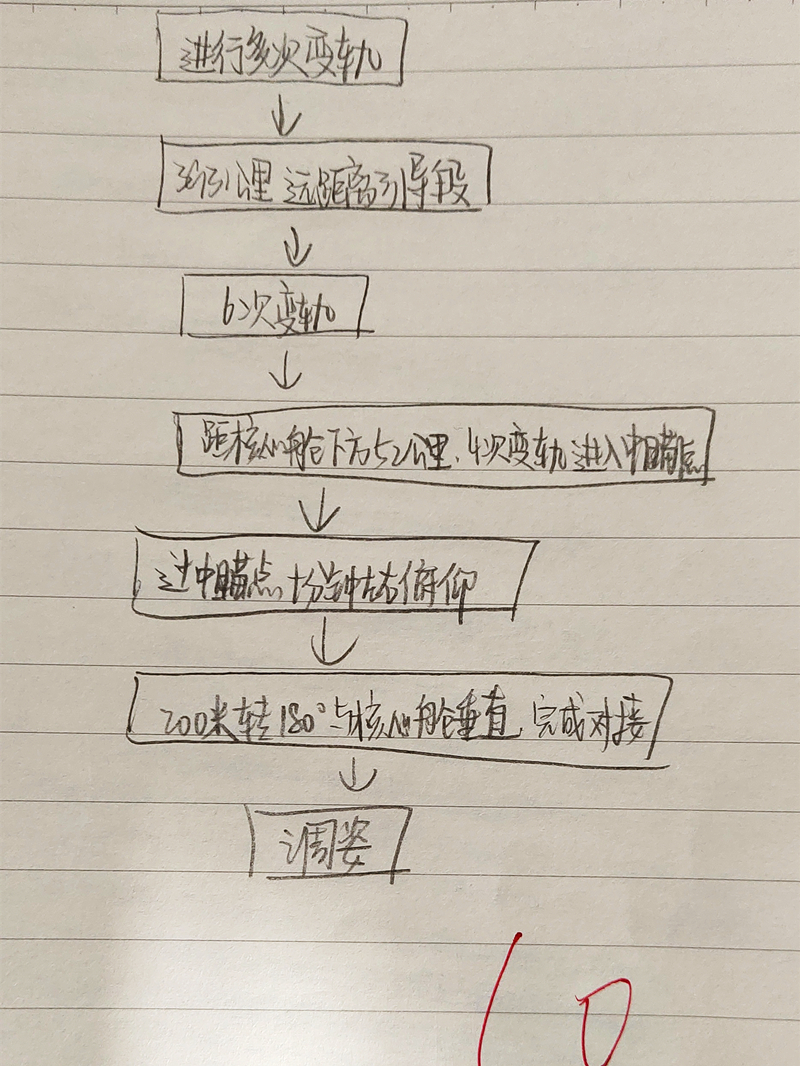 进行多次变轨
公里 远距离引导段
6次变轨
距核心舱下方52公里、4次变轨进入中瞄点
过中瞄点 十分钟左右俯仰
200米转180°与核心舱垂直,完成对接
调姿
10